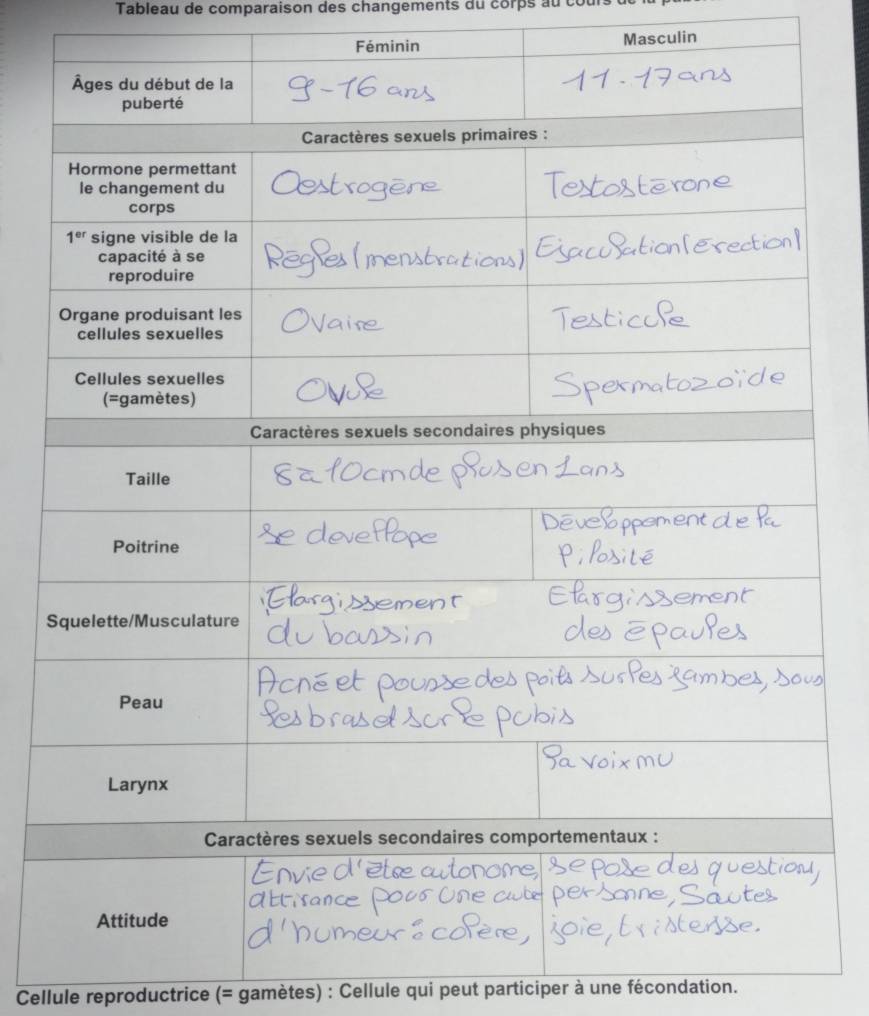 Tableau de comparaison des changements du corps au cours de la
Féminin
Masculin
Âges du début de la
puberté
9-16 ans
11-17 ans
Caractères sexuels primaires :
Hormone permettant
le changement du
corps
Oestrogène
Testostérone
1er signe visible de la
capacité à se
reproduire
Règles (menstrations)
Ejaculation (érection)
Organe produisant les
cellules sexuelles
Ovaire
Testicule
Cellules sexuelles
(=gamètes)
Ovule
Spermatozoïde
Caractères sexuels secondaires physiques
Taille
8 à 10 cm de plus en 1 ans
Poitrine
se devellope
Développement de la
pilosité
Squelette/Musculature
Elargissement
du bassin
Elargissement
des épaules
Peau
Acné et pousse des poils sur les jambes, sous
les bras et sur le pubis
Larynx
la voix mu
Caractères sexuels secondaires comportementaux :
Attitude
Envie d'être autonome, se pose des questions,
attirance pour une autre personne, Sautes
d'humeur : colère, joie, tristesse.
Cellule reproductrice (= gamètes) : Cellule qui peut participer à une fécondation.